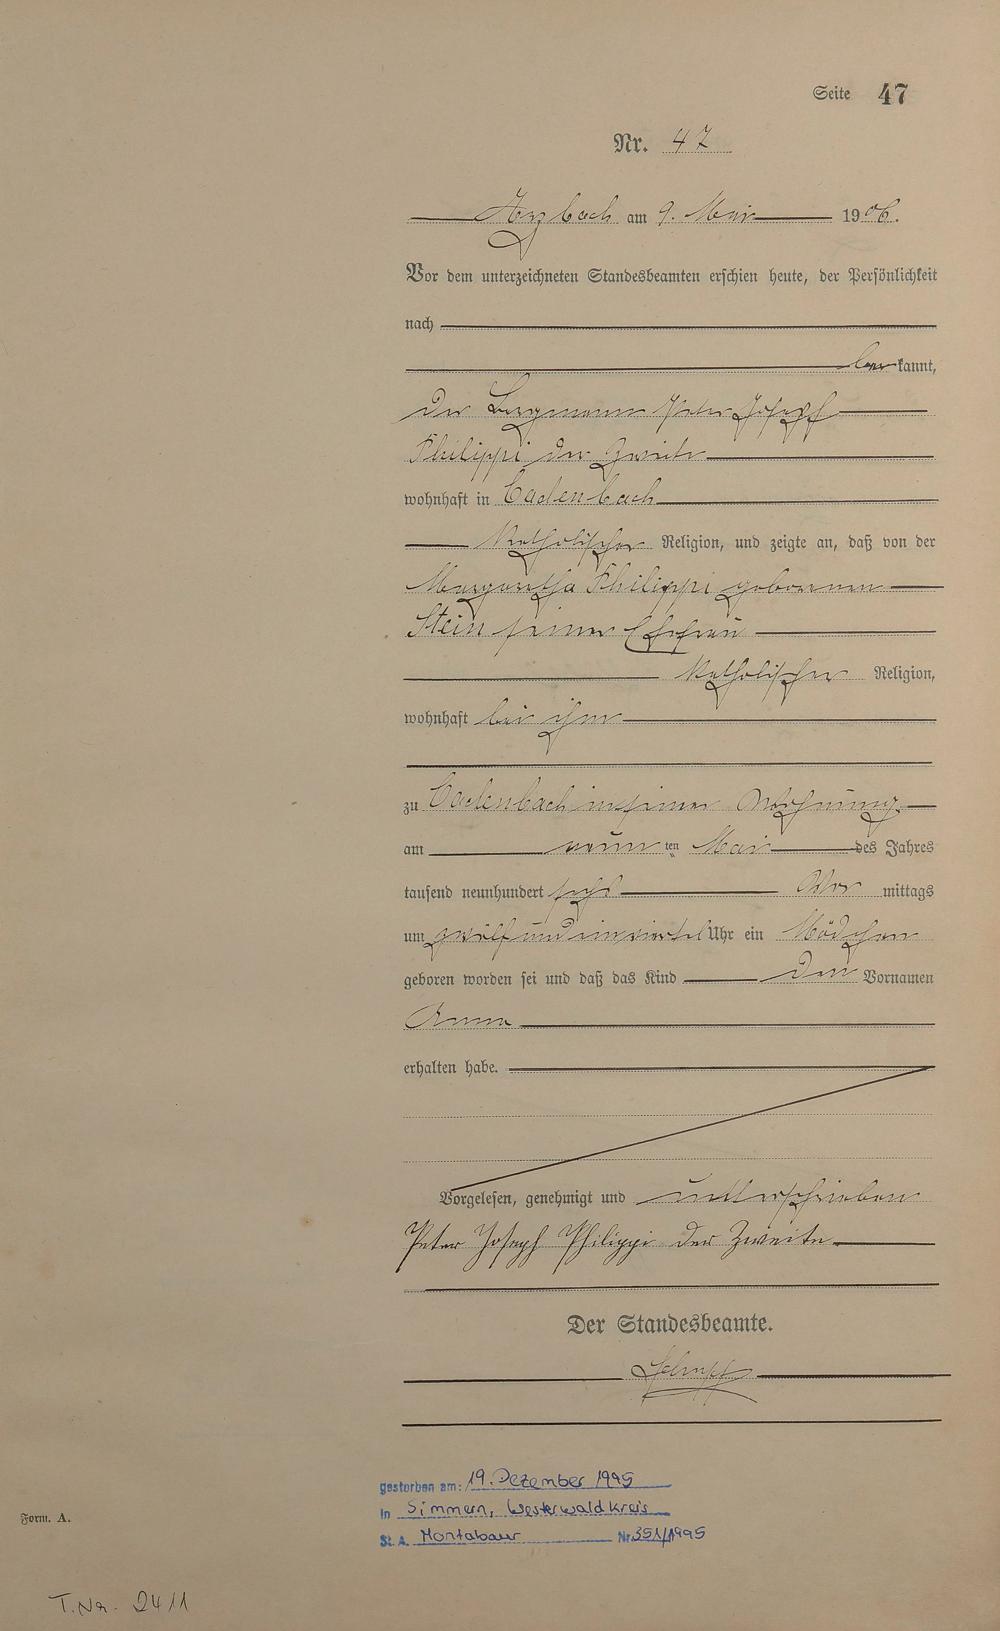 Seite 47
Nr. 47
Arzbach am 9. Mai 1906.
Vor dem unterzeichneten Standesbeamten erschien heute, der Persönlichkeit
nach
be kannt,
der Bergmann Peter Joseph
Philippi der Zweite
wohnhaft in Cadenbach
katholischer Religion, und zeigte an, daß von der
Margaretha Philippi geborenen
Stein seiner Ehefrau
katholischer Religion,
wohnhaft bei ihm
zu Cadenbach in seiner Wohnung
am neun ten Mai des Jahres
tausend neunhundert sechs Vor mittags
um zwölf und einviertel Uhr ein Mädchen
geboren worden sei und daß das Kind den Vornamen
Anna
erhalten habe.
Vorgelesen, genehmigt und unterschrieben
Peter Joseph Philippi der Zweite
Der Standesbeamte.
gestorben am: 19. Dezember 1995
in Simmern, Westerwaldkreis
St. A. Montabaur Nr. 351/1995
Form. A.
T. Nr. 2411